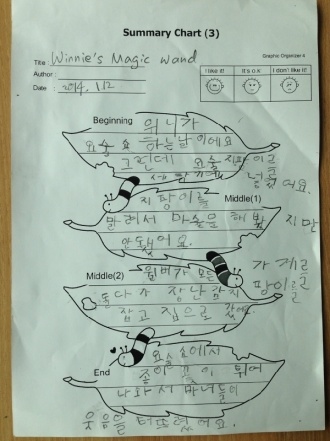 Summary Chart (3)
Graphic Organizer 4
Title : Winnie's Magic wand
Author :
Date : 2014. 1/2
I like it!
It's o.k
I don't like it!
Beginning
위니가
요술 쇼 하는 날이에요
그런데 요술지팡이를
세탁기에 넣었어요.
지팡이를
Middle(1)
말려서 마술을 해봤지만
안됐어요.
Middle(2)
윌버가 가게로
돌다가 장난감 지팡이를
잡고 집으로
End
요술 쇼에서
나와서 마녀들이
웃음을 터뜨렸어요.